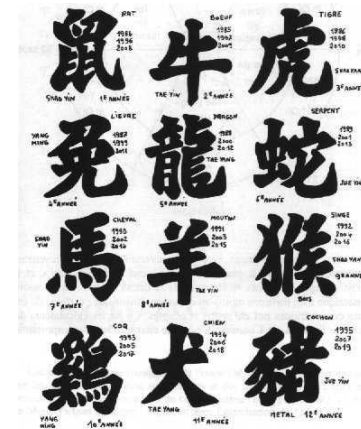 RAT
鼠
1996
2008
SHAO YIN 1e ANNÉE
BOEUF
1985
1997
2009
牛
TAE YIN 2e ANNÉE
TIGRE
虎
1986
1998
2010
3e ANNÉE
LIEVRE
YANG
MING
兔
1987
1999
2011
4e ANNÉE
DRAGON
龍
1988
2000
2012
TAE YANG
5e ANNÉE
SERPENT
蛇
1989
2001
2013
JUE YIN
6e ANNÉE
CHEVAL
SHAO
YIN
馬
1990
2002
2014
7e ANNÉE
MOUTON
羊
1991
2003
2015
TAE YIN
8e ANNÉE
SINGE
猴
1992
2004
2016
SHAO YANG
9e ANNÉE
COQ
鷄
1993
2005
2017
YANG
MING
10e ANNÉE
CHIEN
犬
1994
2006
2018
TAE YANG
11e ANNÉE
COCHON
豬
1995
2007
2019
JUE YIN
METAL 12e ANNÉE